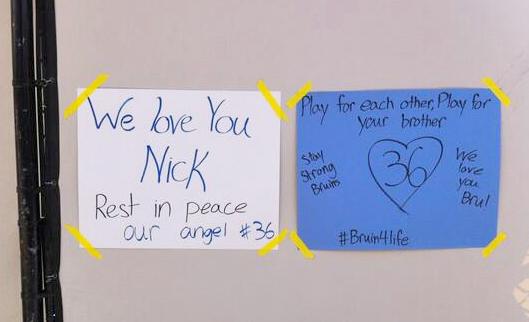 We love You
Nick
Rest in peace
our angel #36
Play for each other, Play for
your brother
Stay
Strong
Bruins
36
We
love
you
Bru!
#Bruin4life